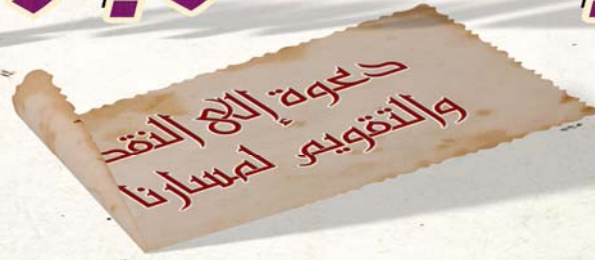 دعوة إلى النقد
والتقويم لمسارنا